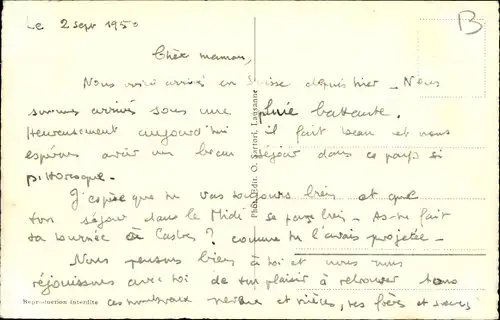 Le 2 Sept 1950
B
Chère maman,
Nous voici arrivés en Suisse depuis hier – Nous
sommes arrivés sous une pluie battante.
Heureusement aujourd'hui il fait beau et nous
espérons avoir un beau séjour dans ce pays si
pittoresque.
J'espère que tu vas toujours bien et que
ton séjour dans le Midi se passe bien – As-tu fait
ta tournée à Castres ? comme tu l'avais projetée –
Nous pensons bien à toi et nous nous
réjouissons avec toi de ton plaisir à retrouver tous
ces nombreux neveux et nièces, tes frères et sœurs
Reproduction interdite
Phot. Edit. O. Sartori, Lausanne